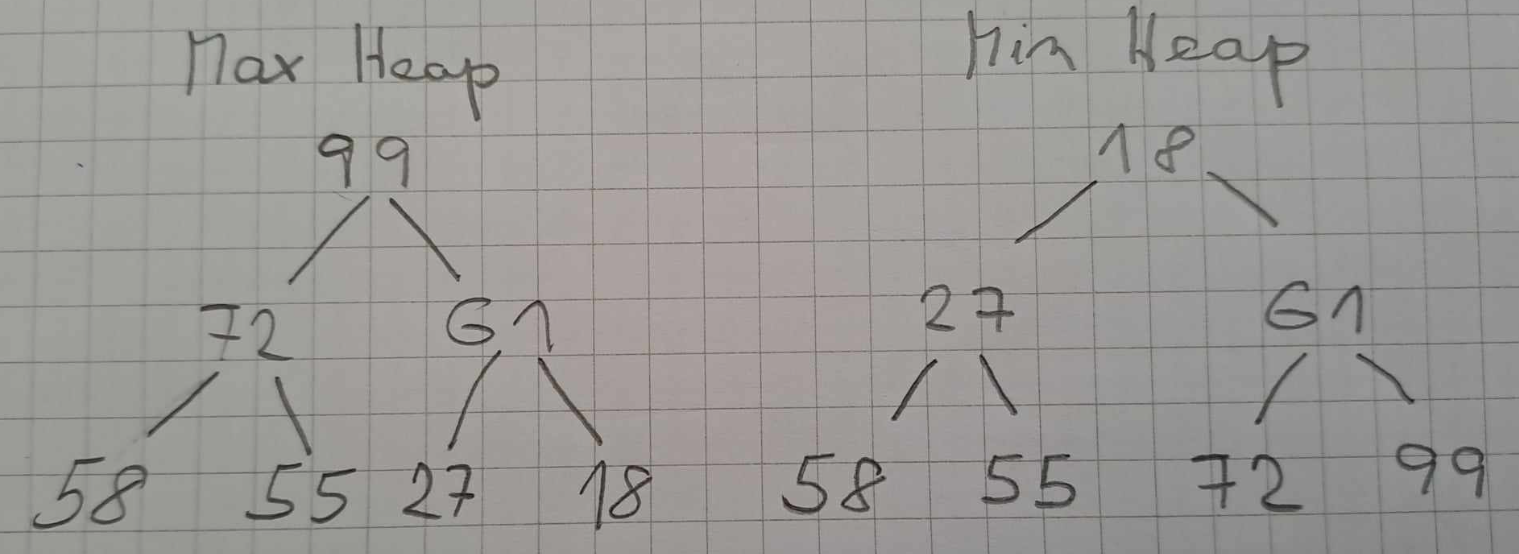 Max Heap
99
72 61
58 55 27 18
Min Heap
18
27 61
58 55 72 99